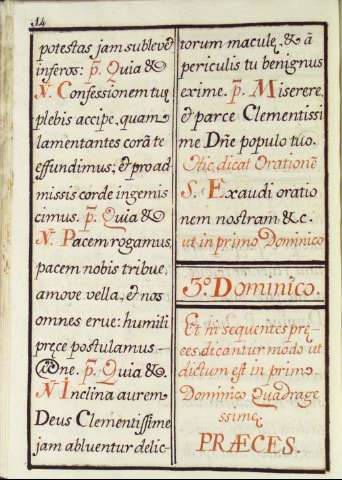 14
potestas jam subleve
inferos: p̃. Quia &
℣. Confessionem tuę
plebis accipe, quam
lamentantes corã te
effundimus; & pro ad
missis corde ingemis
cimus. p̃. Quia &
℣. Pacem rogamus,
pacem nobis tribue,
amove vella, & nos
omnes erue: humili
pręce postulamus
One. p̃. Quia &
℣. Inclina aurem
Deus Clementissime
jam abluentur delic-
torum maculę, & ã
periculis tu benignus
exime. p̃. Miserere,
et parce Clementissi
me Dñe populo tuo.
Hic, dicat Orationẽ
S. Exaudi oratio
nem nostram & c.
ut in primo Dominico
3.º Dominico.
Et hi sequentes pre-
ces, dicantur modo ut
dictum est in primo
Dominico Quadrage
ssimę
PRÆCES.